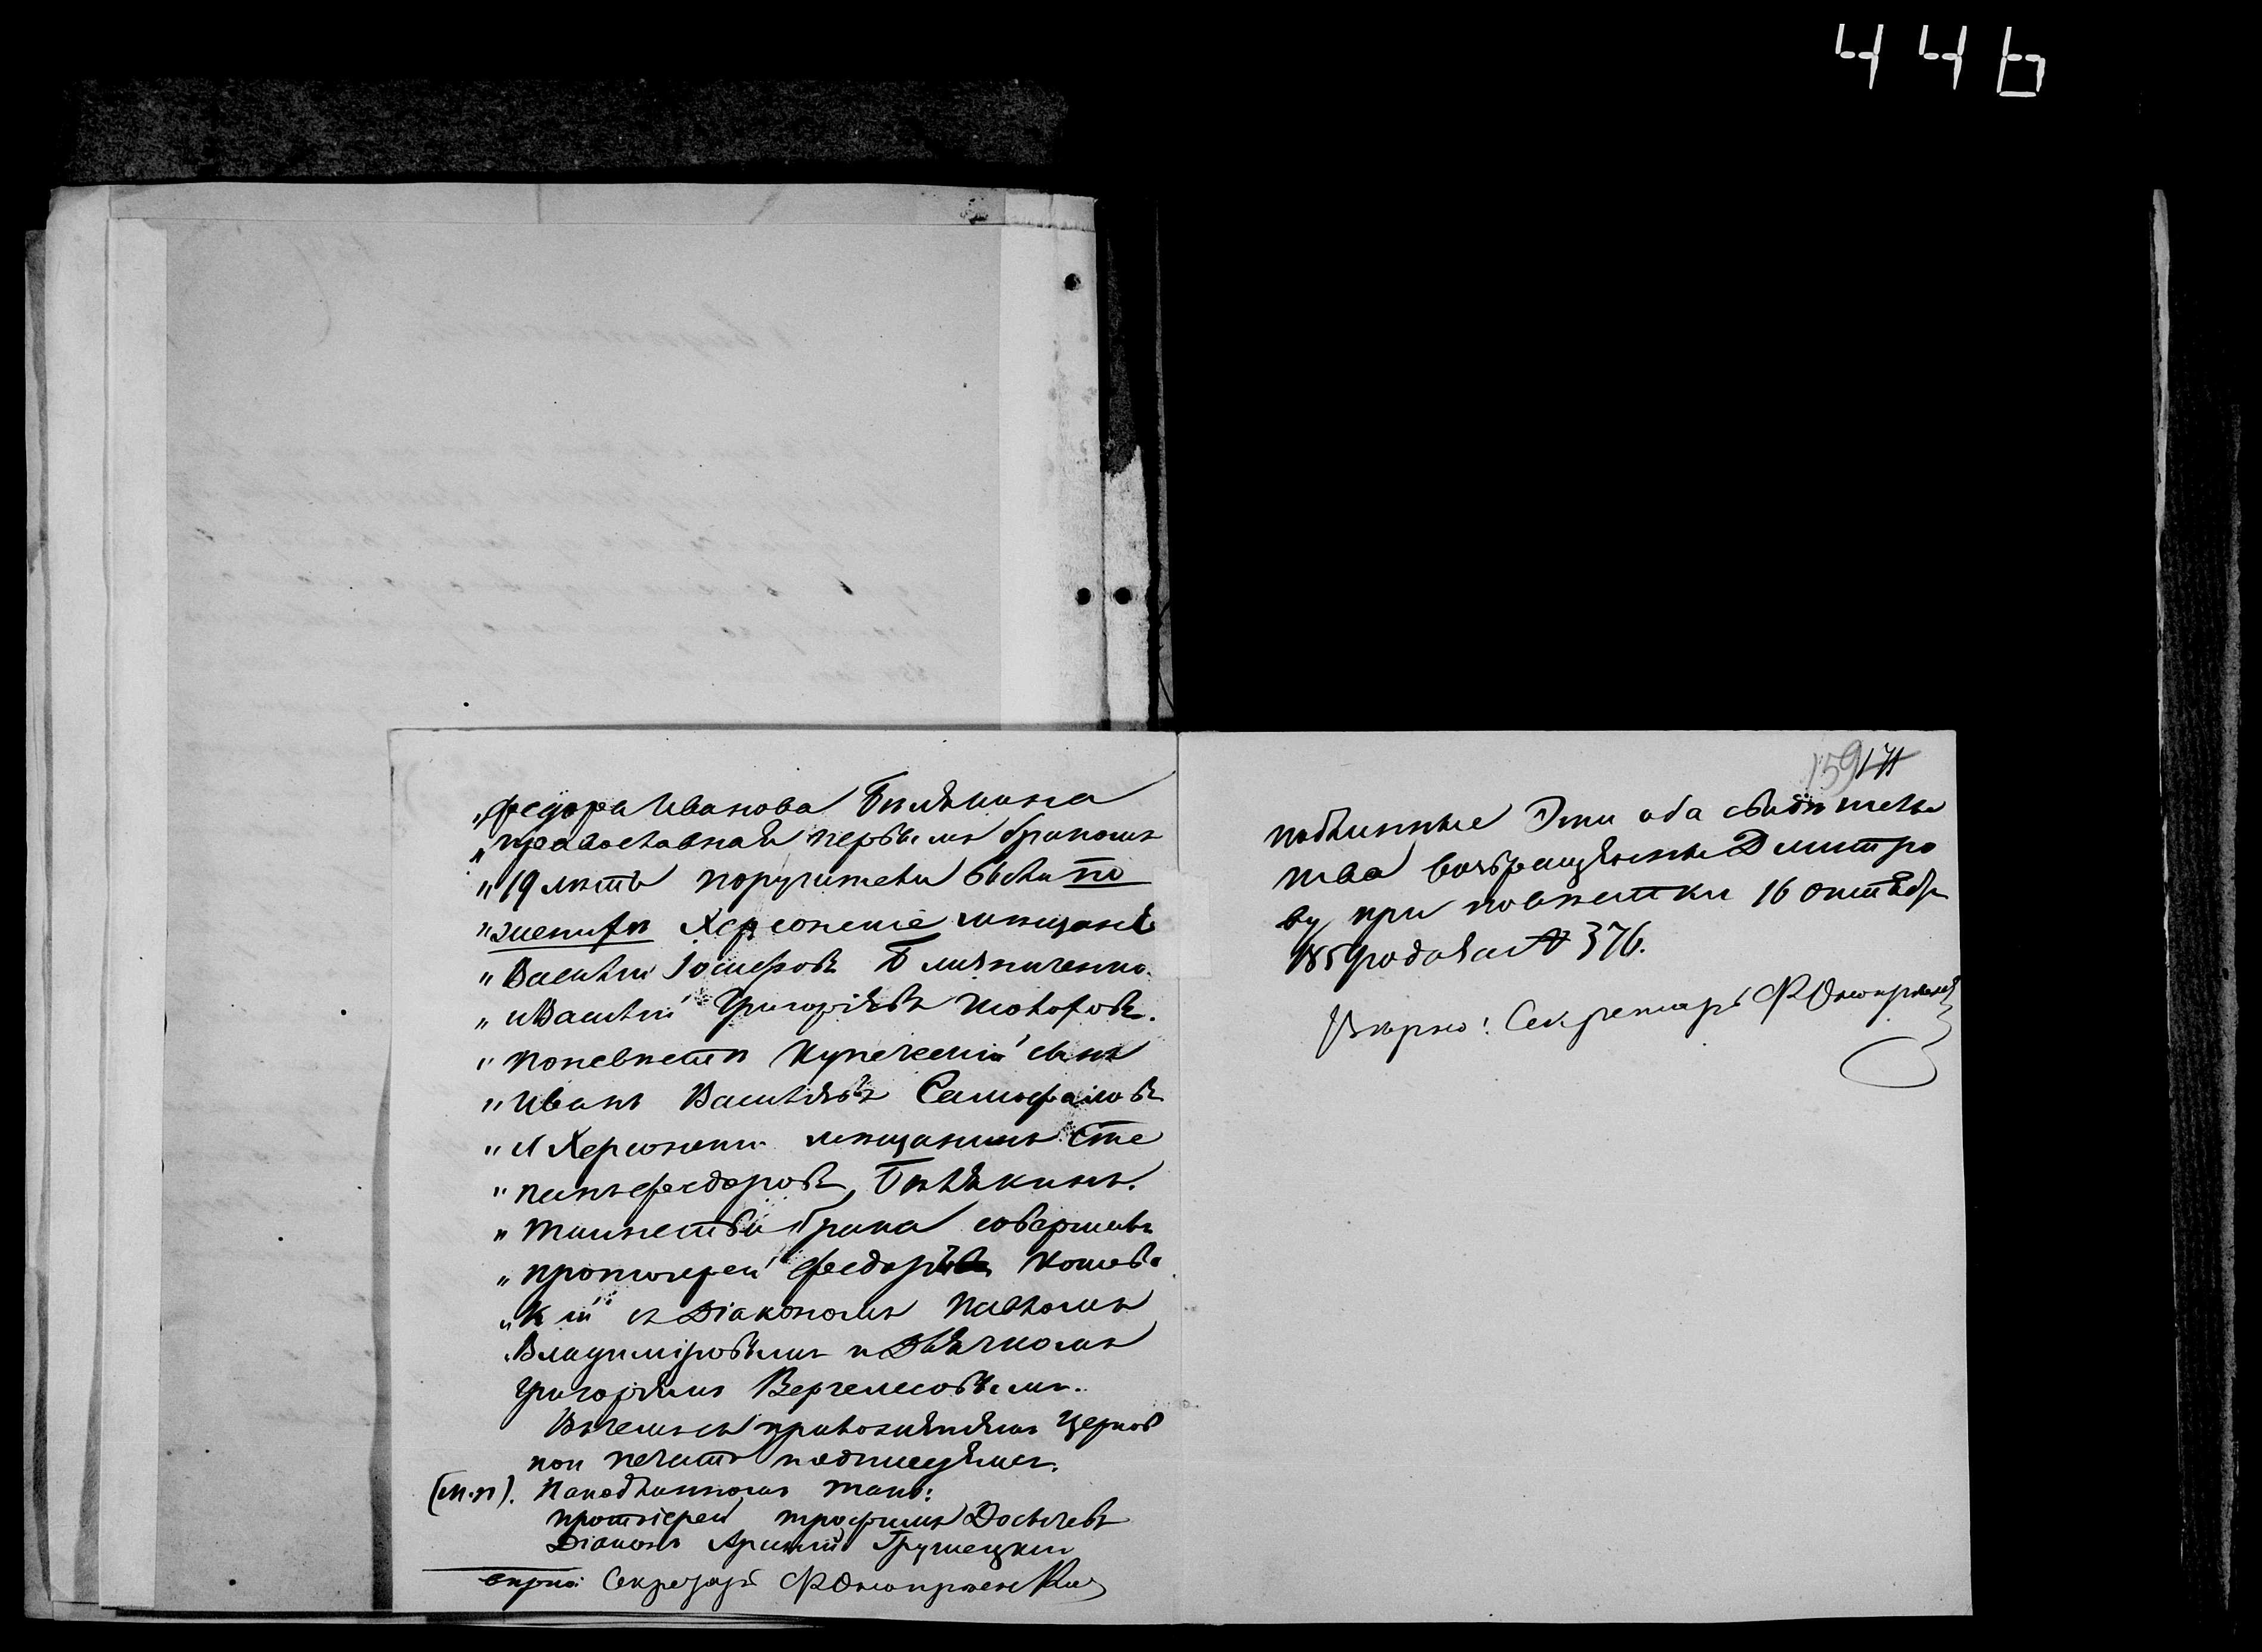 446
„Федора Иванова Билякина
„православная первымъ бракомъ
„19 лѣтъ поручители были по
„женихѣ Херсонскіе мещане
„Василій Іосифовъ Близниченко
„и Василій Григорьевъ
„по невѣстѣ Купеческій сынъ
„Иванъ Васильевъ Самофаловъ
„и Херсонскій мещанинъ Сте
„панъ Федоровъ Билякинъ.
„таинство брака совершилъ
„протоіерей Федоръ
„кій съ Діакономъ Павломъ
„Владиміровымъ и Дьячкомъ
Григоріемъ Вергелесовымъ.
Въ чемъ съ приложеніемъ Церков
ной печати подписуемся.
(м.п). На подлинномъ тако:
протоіерей Трофимъ
Діаконъ Арсеній Грушецкій
вѣрно: Секретарь
159 171
подлинные Эти оба свидѣтель
тва возвращены Дмитро
ву при повѣстки 16 октябр
1859 года за № 376.
Вѣрно: Секретарь